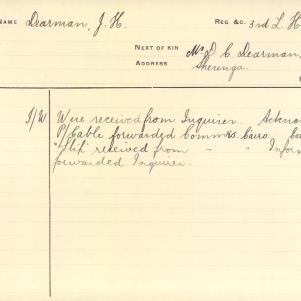 NAME Dearman, J. H. REG. &C. 3rd L. H
NEXT OF KIN Mr D C Dearman,
ADDRESS Sheringa.
Were received from Inquirer. Acknow
P/Cable forwarded Commrs Cairo.
"Slip" received from " " Infor
forwarded Inquirer.